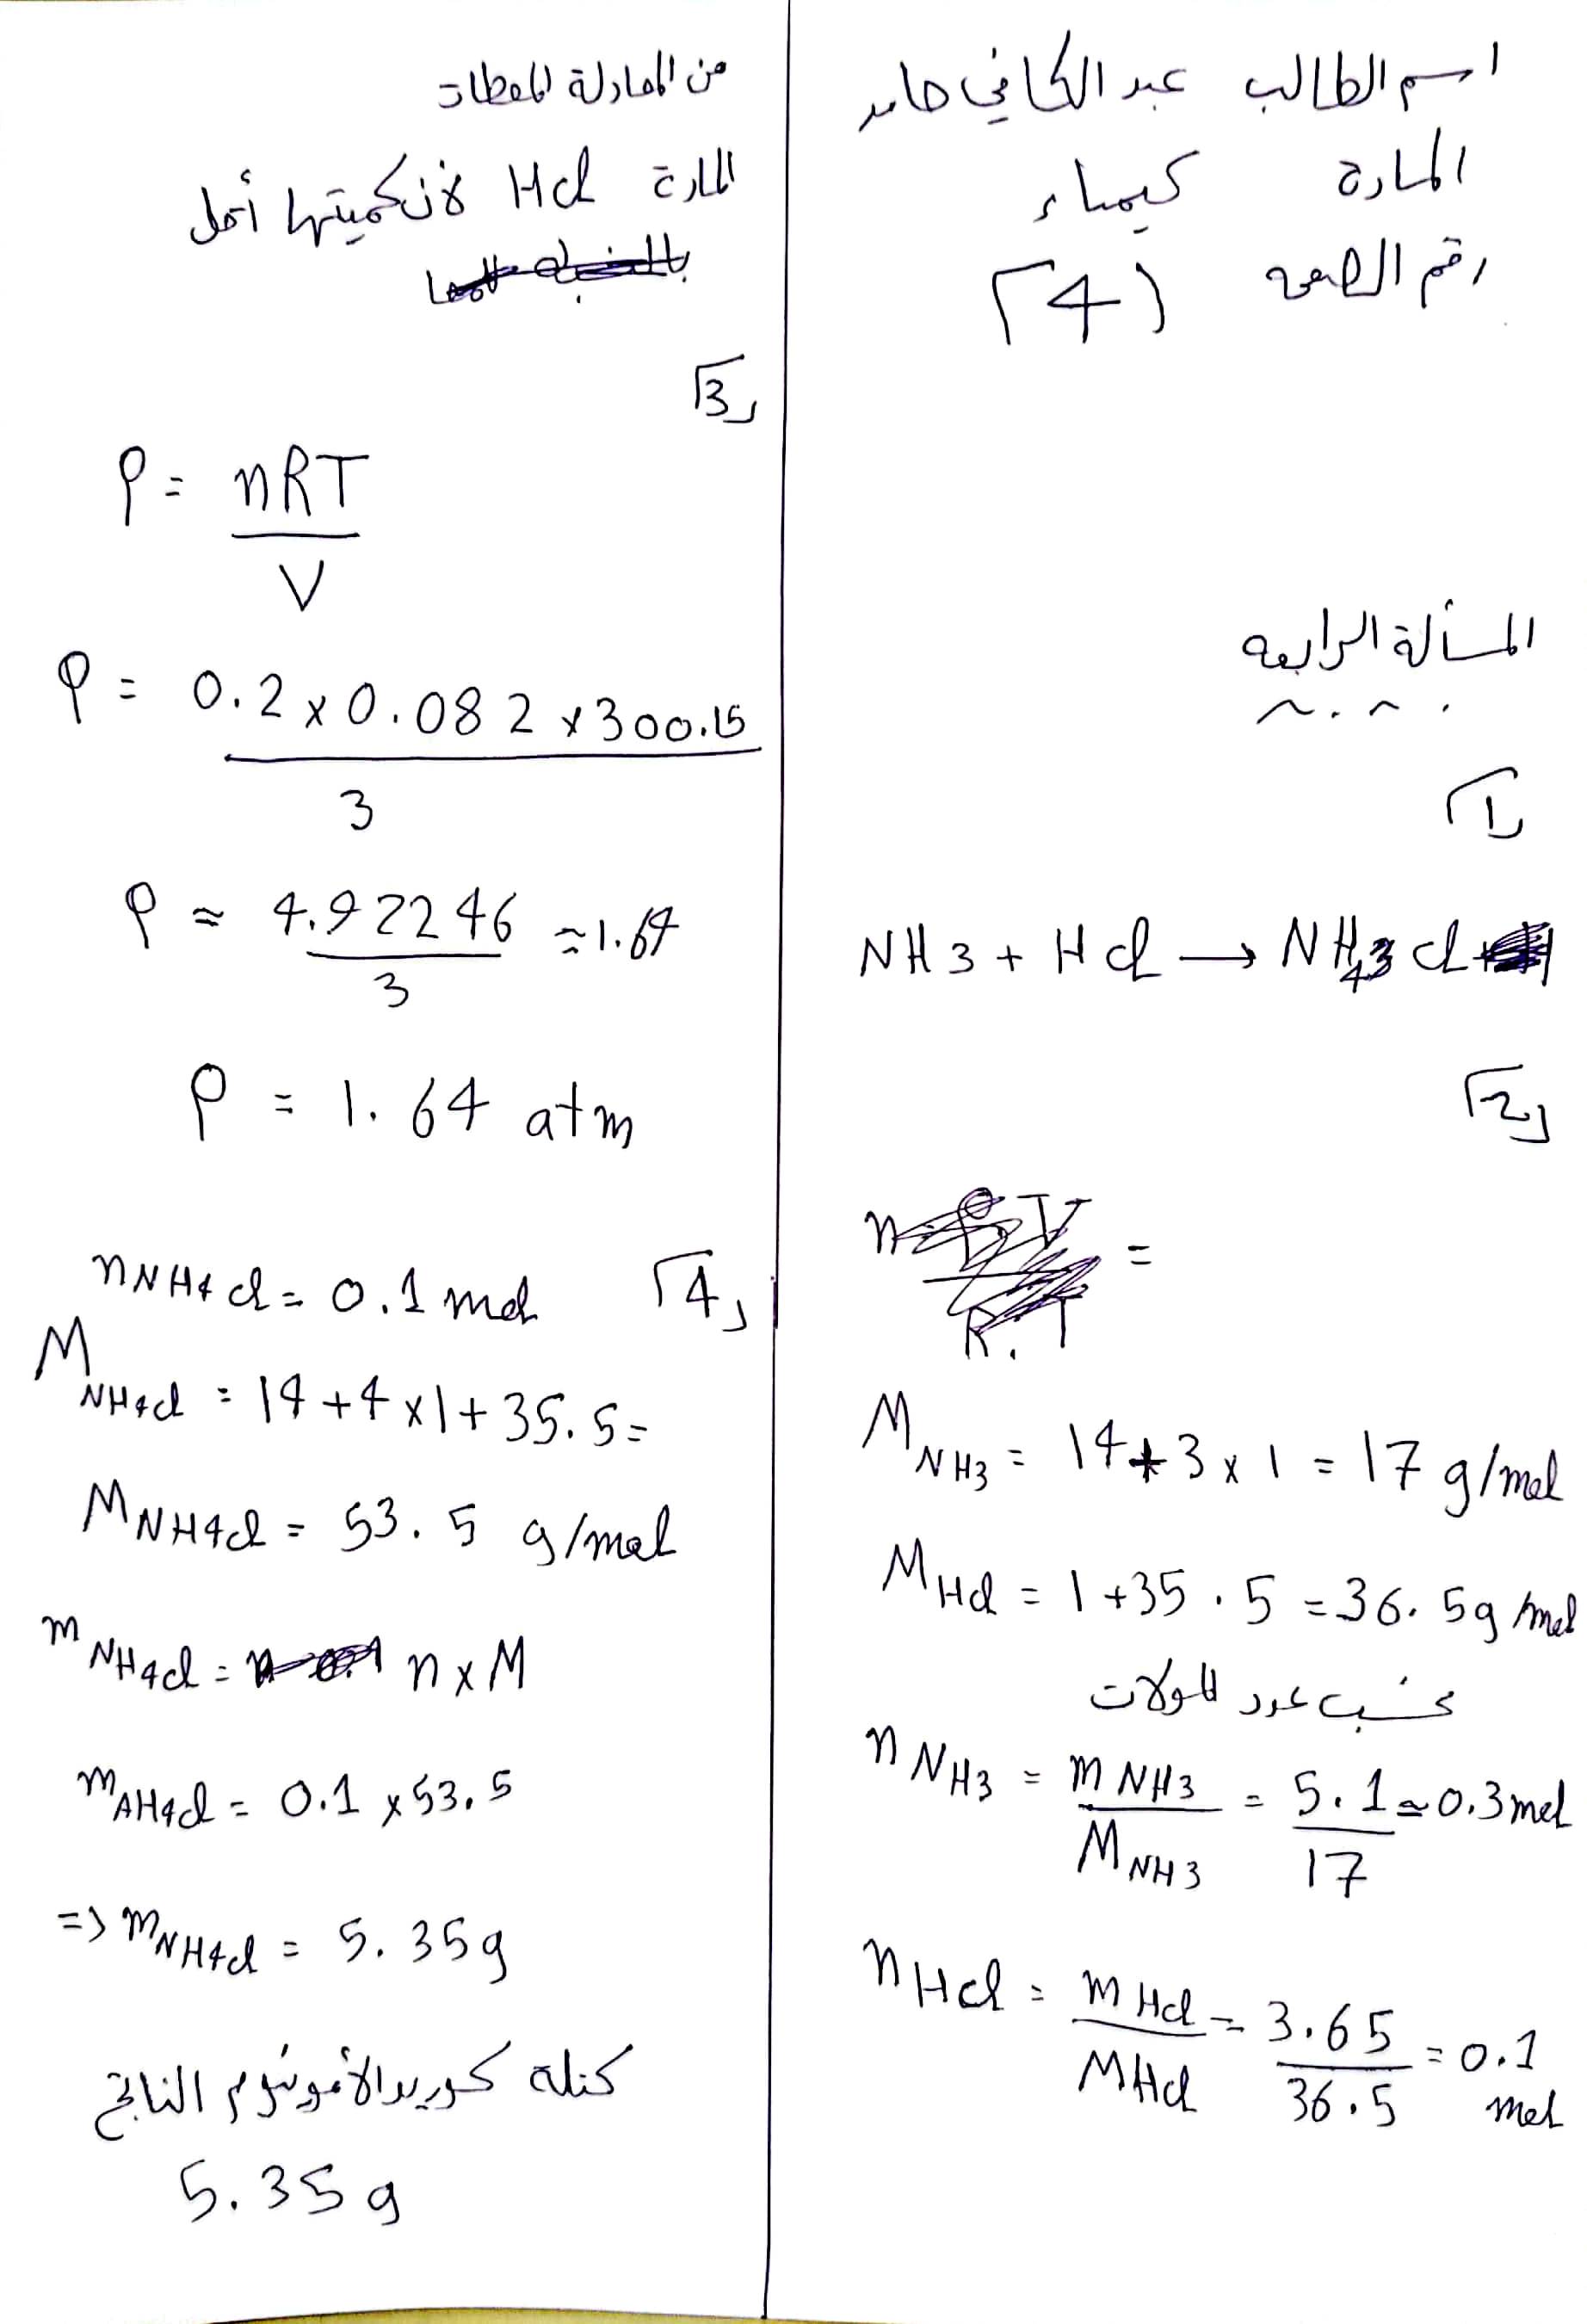 اسم الطالب عبد الكافي حامد
المادة كيمياء
رقم الصفحه (4)
المسألة الرابعه
1
NH3 + HCl → NH4Cl
2
M NH3 = 14 + 3 x 1 = 17 g/mol
M HCl = 1 + 35.5 = 36.5 g/mol
نحسب عدد المولات
n NH3 = m NH3 / M NH3 = 5.1 / 17 ≃ 0.3 mol
n HCl = m HCl / M HCl = 3.65 / 36.5 = 0.1 mol
من المعادلة المعطاة
المادة HCl لأن كميتها أقل
3
P = nRT / V
P = 0.2 x 0.082 x 300.15 / 3
P ≈ 4.92246 / 3 ≈ 1.64
P = 1.64 atm
4
n NH4Cl = 0.1 mol
M NH4Cl = 14 + 4 x 1 + 35.5 =
M NH4Cl = 53.5 g/mol
m NH4Cl = n x M
m AH4Cl = 0.1 x 53.5
=> m NH4Cl = 5.35 g
كتلة كلوريد الأمونيوم الناتج
5.35 g